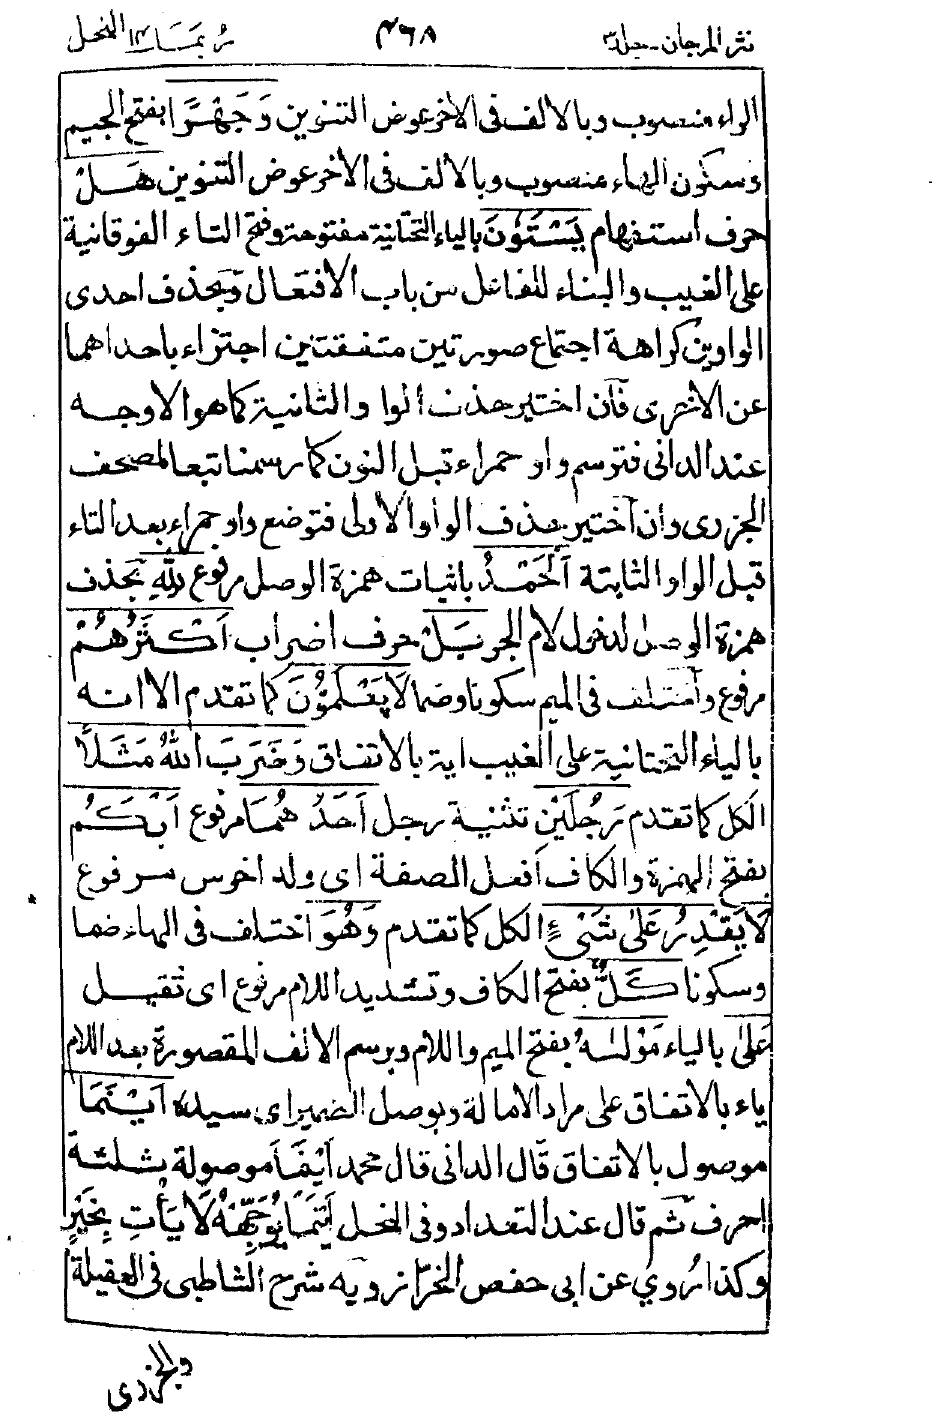 نثر المرجان - جلد٣ ٤٦٨ ربما ١٤ النحل
الراء منصوب وبالالف فى الاخر عوض التنوين وَجَهْرًا بفتح الجيم
وسكون الهاء منصوب وبالالف فى الاخر عوض التنوين هَلْ
حرف استفهام يَسْتَوٗنَ بالياء التحتانية مفتوحة وفتح التاء الفوقانية
على الغيب والبناء للفاعل من باب الافتعال وبحذف احدى
الواوين كراهة اجتماع صورتين متفقتين اجتزاء باحداهما
عن الاخرى فان اختير حذف الواو الثانية كما هو الاوجه
عند الدانى فترسم واو حمراء قبل النون كما رسمنا تبعا لمصحف
الجزرى وان اختير حذف الواو الاولى فتوضع واو حمراء بعد التاء
قبل الواو الثابتة اَلْحَمْدُ باثبات همزة الوصل مرفوع لِلّٰهِ بحذف
همزة الوصل لدخول لام الجر بَلْ حرف اضراب اَكْثَرُهُمْ
مرفوع واختلف فى الميم سكونا وضما لَا يَعْلَمُوْنَ كما تقدم الا انه
بالياء التحتانية على الغيب اية بالاتفاق وَضَرَبَ اللهُ مَثَلًا
الكل كما تقدم رَجُلَيْنِ تثنية رجل اَحَدُهُمَا مرفوع اَبْكَمُ
بفتح الهمزة والكاف افعل الصفة اى ولد اخرس مرفوع
لَا يَقْدِرُ عَلٰى شَىْءٍ الكل كما تقدم وَهُوَ اختلف فى الهاء ضما
وسكونا كَلٌّ بفتح الكاف وتشديد اللام مرفوع اى ثقيل
عَلٰى بالياء مَوْلٰىهُ بفتح الميم واللام وبرسم الالف المقصورة بعد اللام
ياء بالاتفاق على مراد الامالة وبوصل الضمير اى سيده اَيْنَمَا
موصول بالاتفاق قال الدانى قال محمد اَيْنَمَا موصولة ثلثة
احرف ثم قال عند التعداد وفى النحل اَيْنَمَا يُوَجِّهْهُ لَا يَأْتِ بِخَيْرٍ
وكذا روي عن ابى حفص الخزاز وبه شرح الشاطبى فى العقيلة
والجزرى